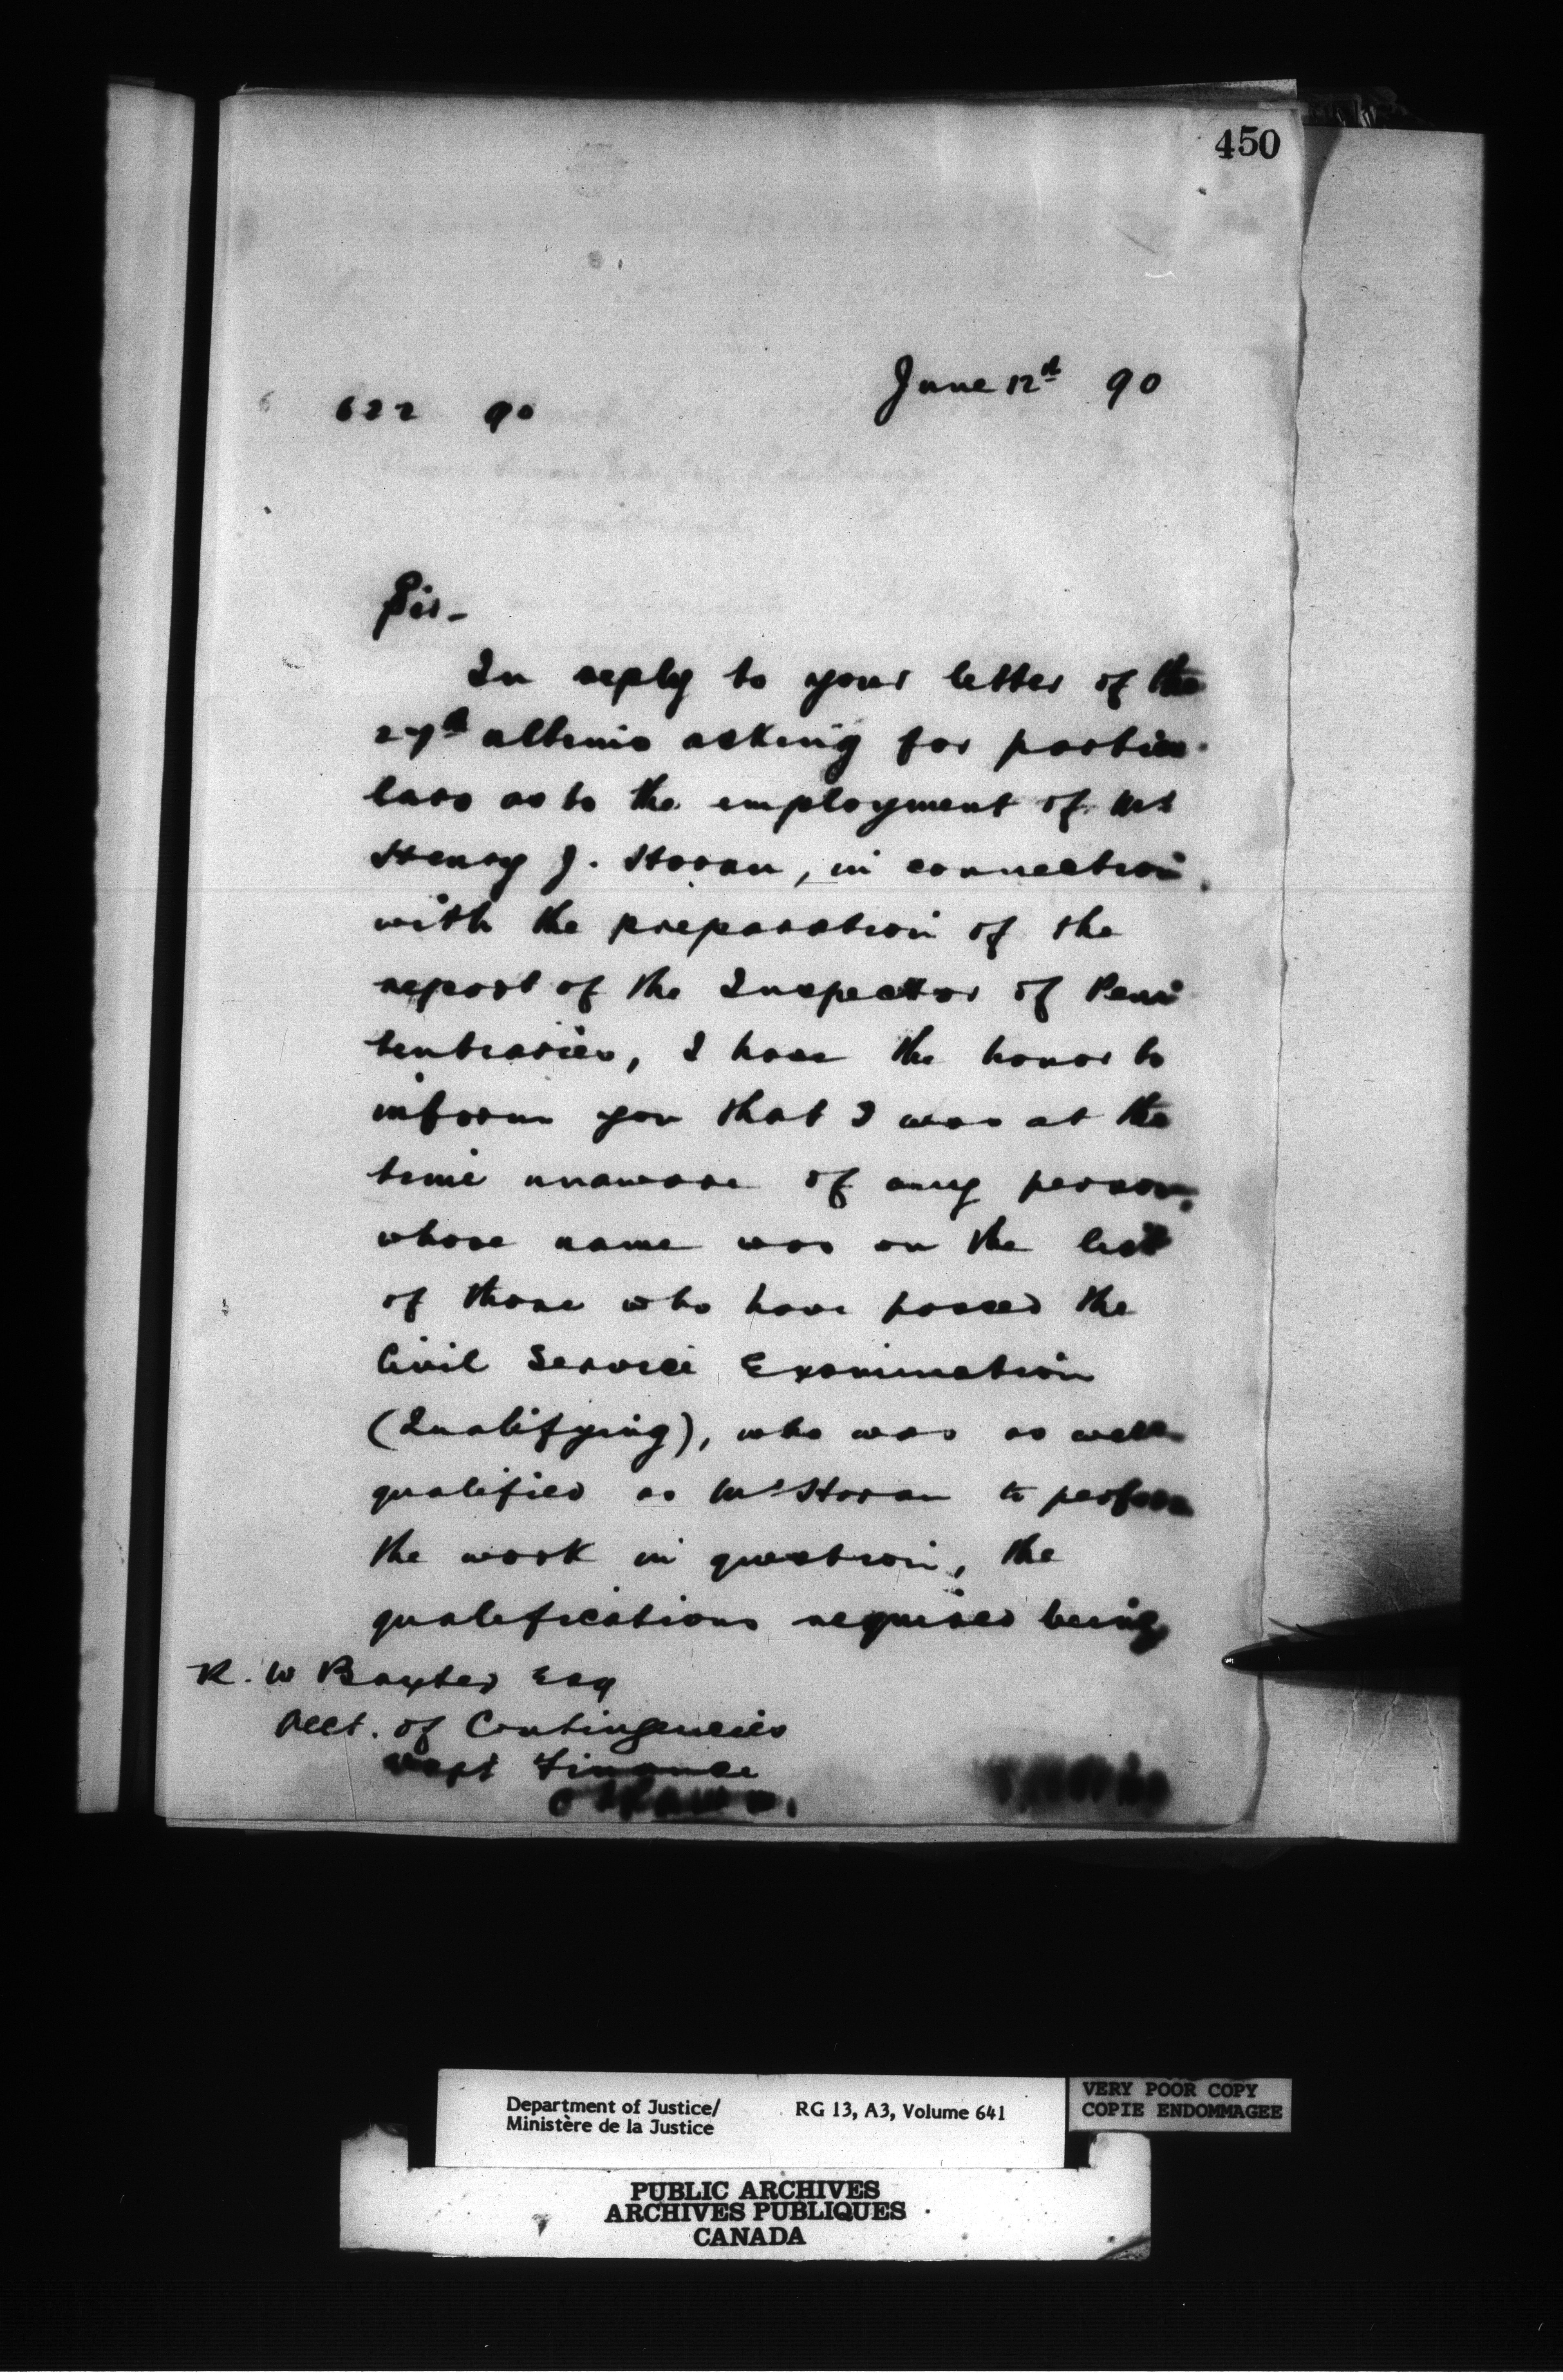 450
June 12th 90
622 90
Sir-
In reply to your letter of the
27th ultimo asking for particu-
lars as to the employment of Mr
Henry J. Horan, in connection
with the preparation of the
report of the Inspector of Peni
tentiaries, I have the honor to
inform you that I was at the
time unaware of any person,
whose name was on the list
of those who have passed the
Civil Service Examination
(Qualifying), who was as well
qualified as Mr Horan to perform
the work in question, the
qualifications required being
R. W Baxter Esq
Acct. of Contingencies
Dept Finance
Ottawa.
Department of Justice/
Ministère de la Justice
RG 13, A3, Volume 641
VERY POOR COPY
COPIE ENDOMMAGEE
PUBLIC ARCHIVES
ARCHIVES PUBLIQUES
CANADA